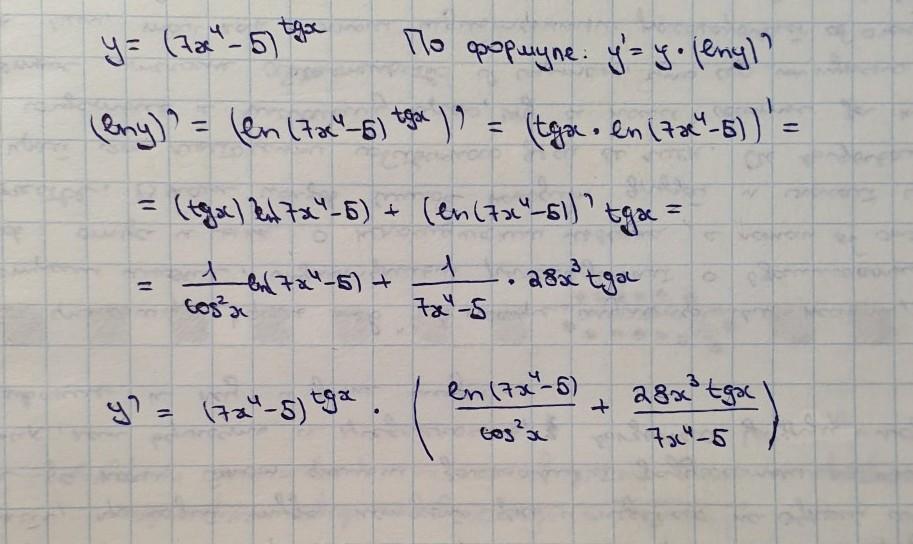 y = (7x⁴ − 5)^tgx По формуле: y' = y · (ln y)'
(ln y)' = (ln (7x⁴ − 5)^tgx)' = (tgx · ln (7x⁴ − 5))' =
= (tgx)' ln(7x⁴ − 5) + (ln (7x⁴ − 5))' tgx =
= 1/cos²x ln(7x⁴ − 5) + 1/(7x⁴ − 5) · 28x³ tgx
y' = (7x⁴ − 5)^tgx · (ln (7x⁴ − 5)/cos²x + 28x³ tgx/(7x⁴ − 5))